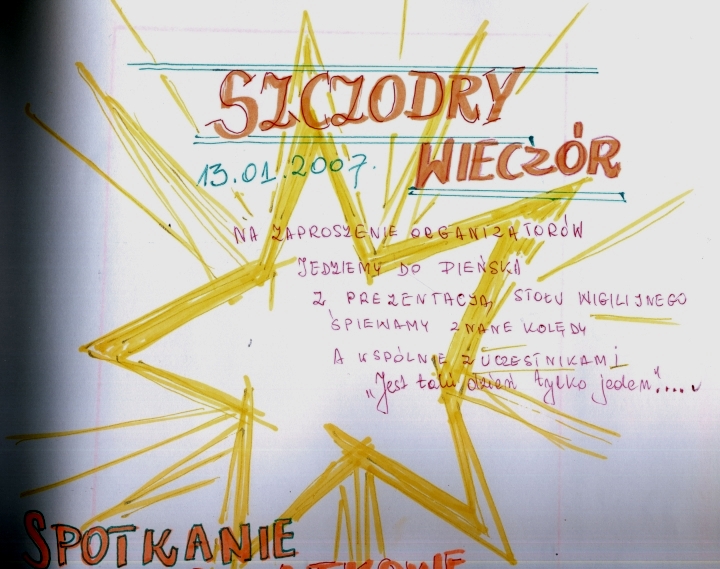 SZCZODRY
WIECZÓR
13.01.2007.
NA ZAPROSZENIE ORGANIZATORÓW
JEDZIEMY DO PIEŃSKA
Z PREZENTACJĄ STOŁU WIGILIJNEGO
ŚPIEWAMY ZNANE KOLĘDY
A WSPÓLNIE Z UCZESTNIKAMI
"Jest taki dzień tylko jeden".....
SPOTKANIE